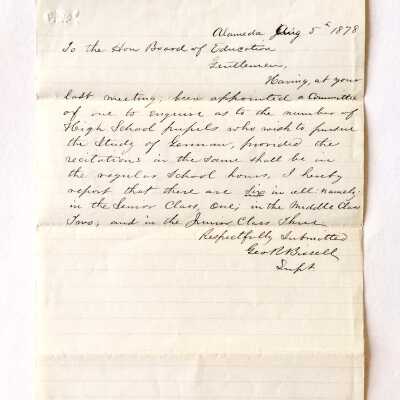 Alameda Aug 5th 1878
To the Hon Board of Education
Gentlemen,
Having, at your
last meeting, been appointed a Committee
of one to enquire as to the number of
High School pupils who wish to pursue
the Study of German, provided the
recitations in the same shall be in
the regular School hours, I hereby
report that there are six in all: namely;
in the Senior Class, One; in the Middle Class
Two; and in the Junior Class Three
Respectfully Submitted
Geo R Bissell
Supt